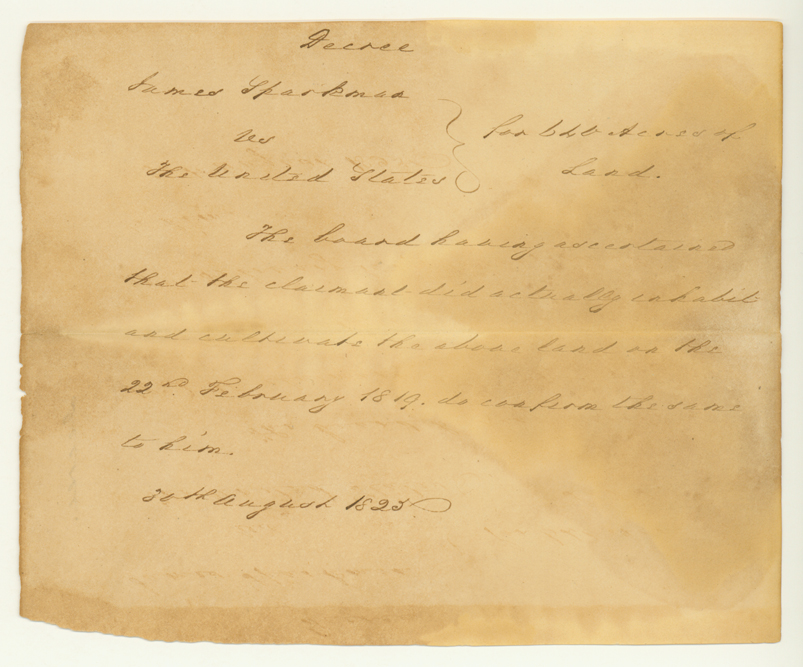 Decree
James Sparkman
vs
The United States
for 640 Acres of
Land.
The board having ascertained
that the claimant did actually inhabit
and cultivate the above land on the
22nd. February 1819. do confirm the same
to him.
30th August 1825